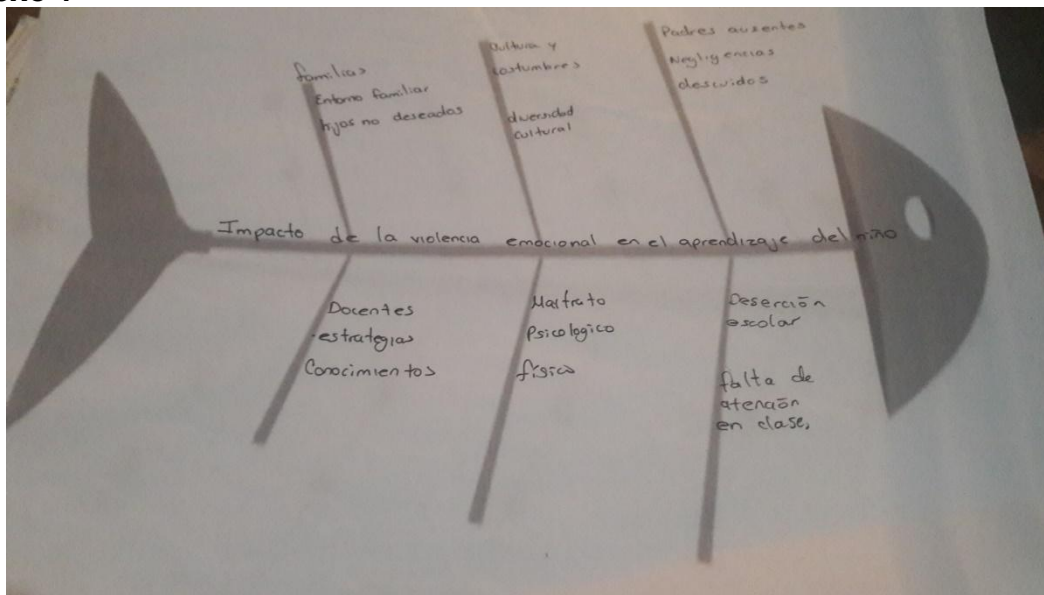 familias
Entorno familiar
hijos no deseados
Cultura y
costumbres
diversidad
cultural
Padres ausentes
Negligencias
descuidos
Impacto de la violencia emocional en el aprendizaje del niño
Docentes
estrategias
Conocimientos
Maltrato
Psicologico
físico
Deserción
escolar
falta de
atención
en clase,